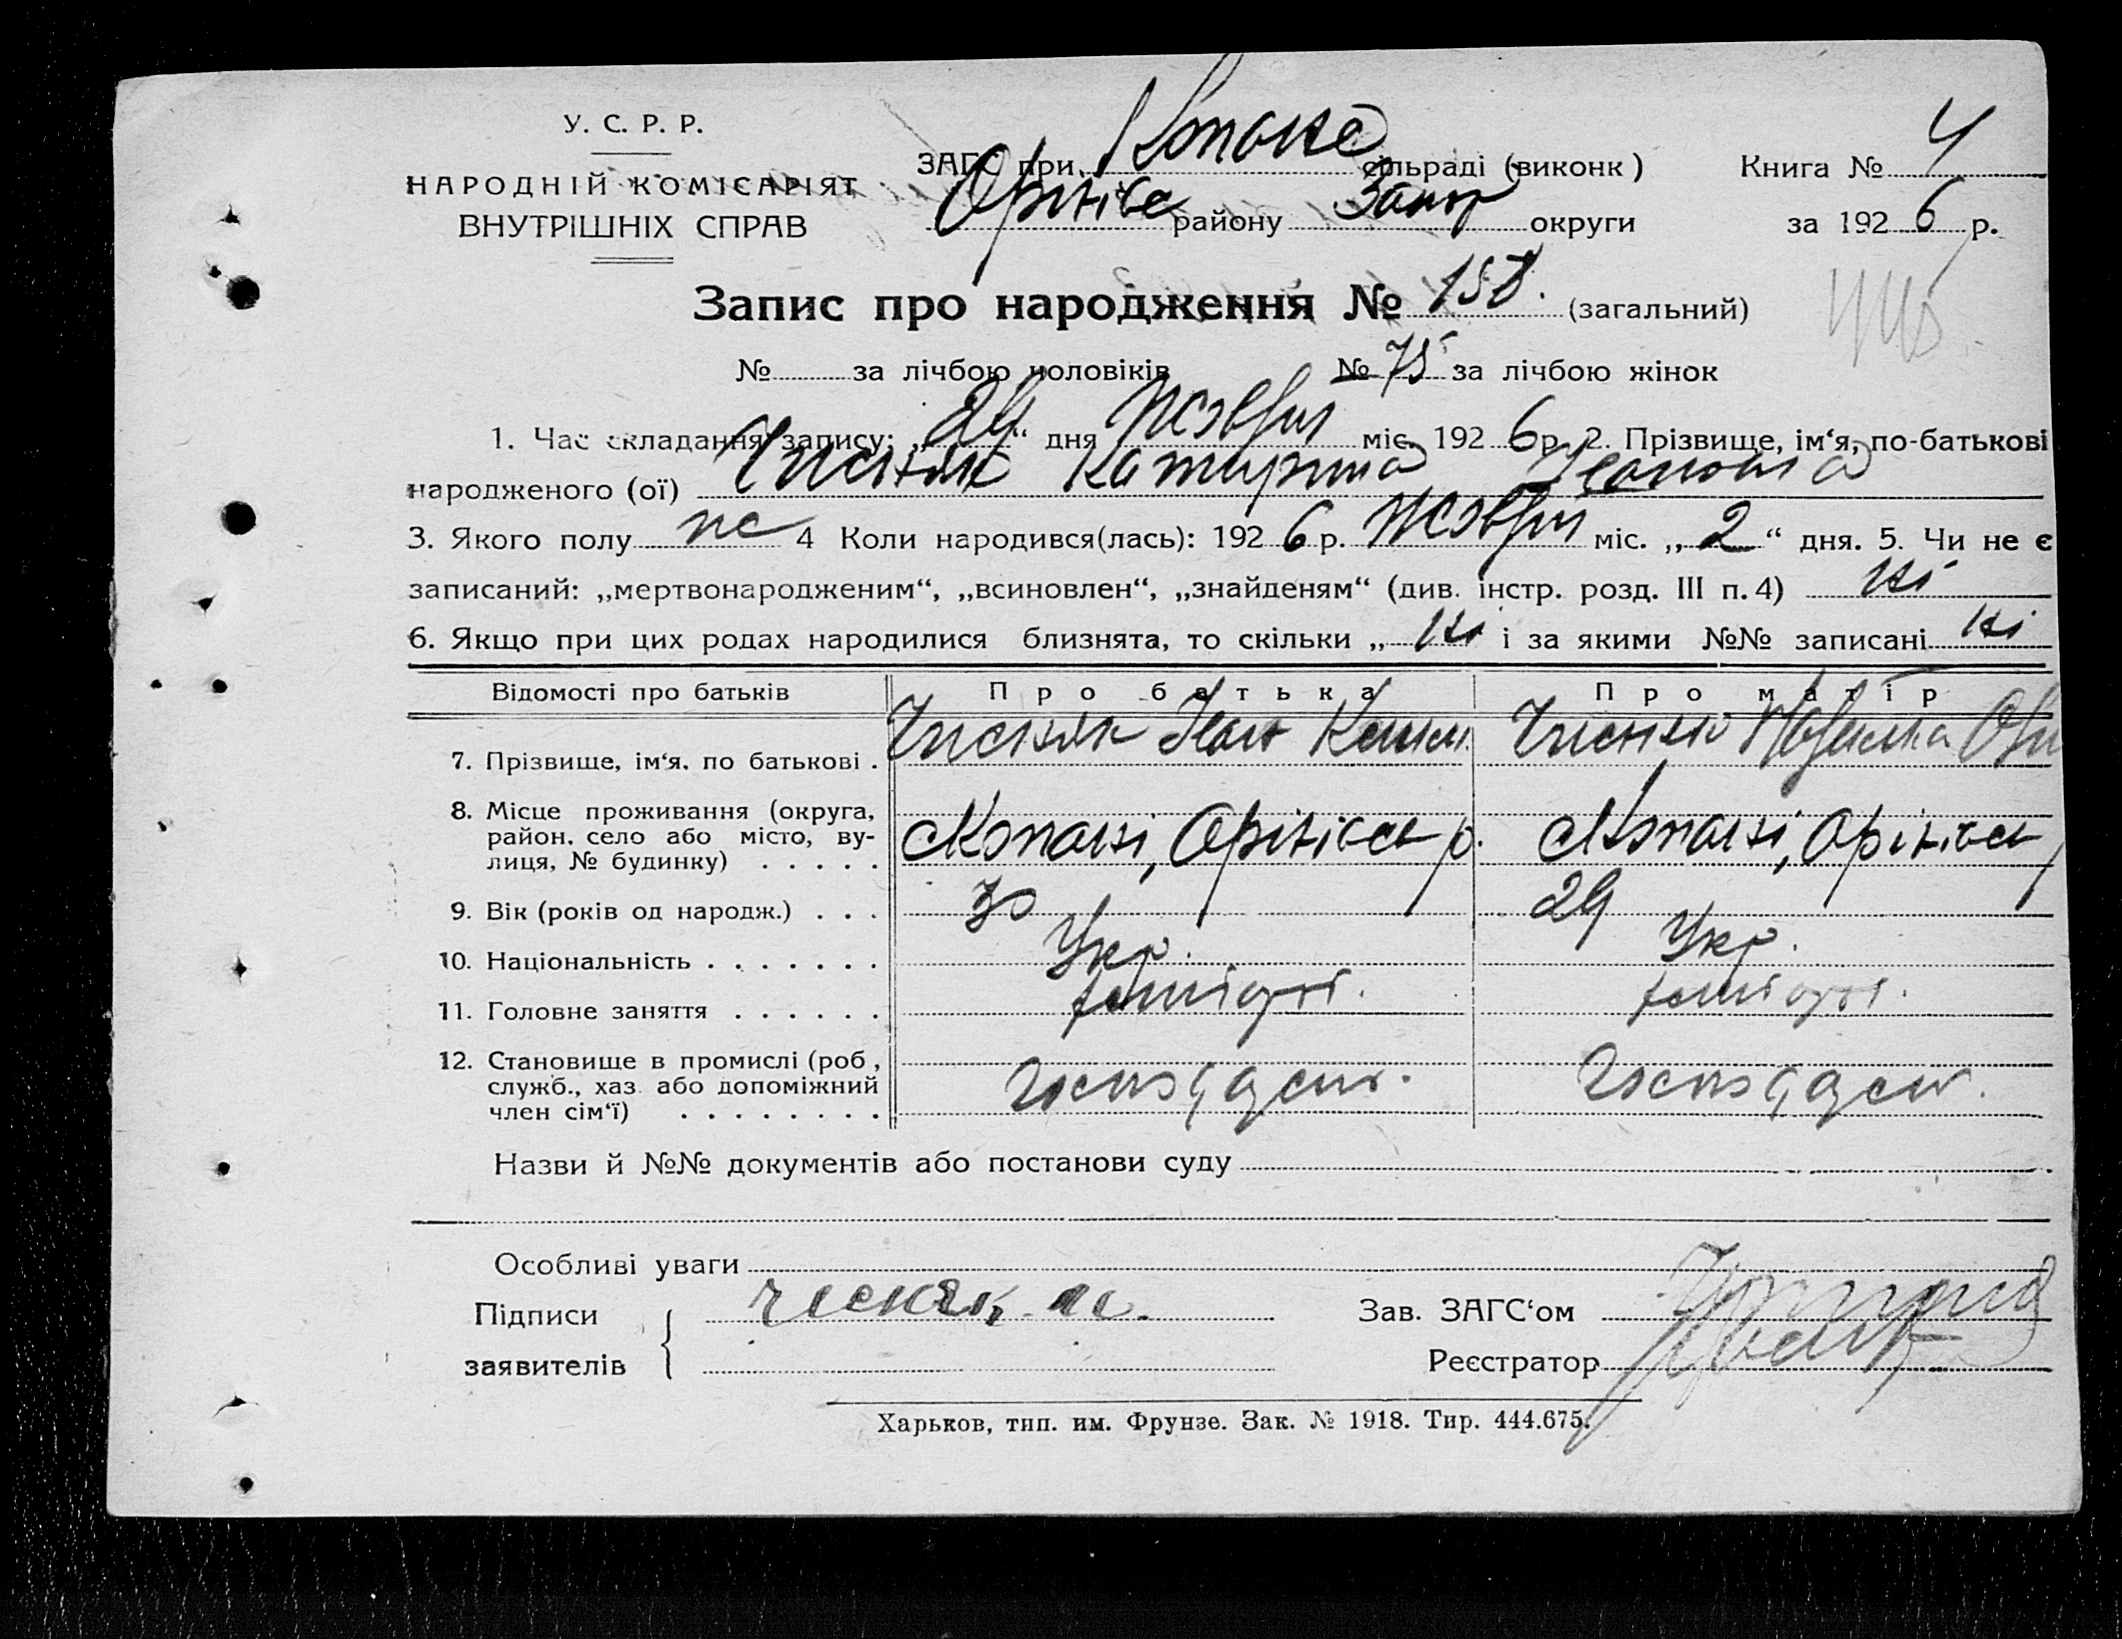 У. С. Р. Р.
НАРОДНІЙ КОМІСАРІЯТ
ВНУТРІШНІХ СПРАВ
ЗАГС при Копане сільраді (виконк)
Оріхівс району Запор округи
Книга № 4
за 1926 р.
Запис про народження № 158. (загальний)
№ за лічбою чоловіків № 75 за лічбою жінок
1. Час складання запису: „ “ дня Жовтня міс. 1926 р. 2. Прізвище, ім‘я, по-батькові
народженого (ої) Чисняк Катирина Івановна
3. Якого полу жс 4 Коли народився(лась): 1926 р. Жовтня міс. „2“ дня. 5. Чи не є
записаний: „мертвонародженим“, „всиновлен“, „знайденям“ (див. інстр. розд. III п. 4) ні
6. Якщо при цих родах народилися близнята, то скільки „ ні і за якими №№ записані ні
Відомості про батьків Про батька Про матір
7. Прізвище, ім‘я, по батькові . Чисняк Іван Чисняк
8. Місце проживання (округа, район, село або місто, вулиця, № будинку) . . . . . Копані, Оріхівськ р. Копані, Оріхівськ
9. Вік (років од народж.) . . . 30 29
10. Національність . . . . . . . Укр. Укр.
11. Головне заняття . . . . . .
12. Становище в промислі (роб, служб., хаз. або допоміжний член сім‘ї) . . . . . . . . Господар.
Назви й №№ документів або постанови суду
Особливі уваги
Підписи
заявителів
Чисняк
Зав. ЗАГС‘ом
Реєстратор
Харьков, тип. им. Фрунзе. Зак. № 1918. Тир. 444.675.